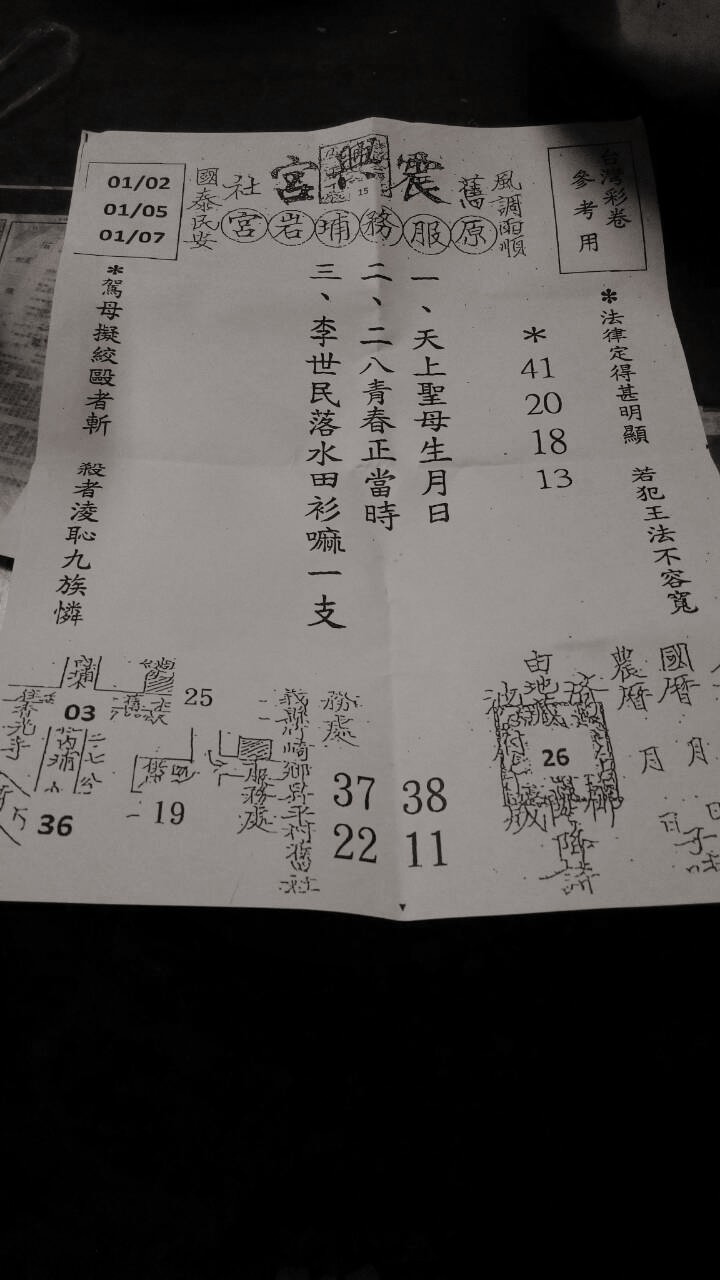 台灣彩卷
參考用
風調雨順
震興宮
15
舊社
原服務埔岩宮
國泰民安
01/02
01/05
01/07
*法律定得甚明顯 若犯王法不容寬
*
41
20
18
13
一、天上聖母生月日
二、二八青春正當時
三、李世民落水田衫嘛一支
*駕母擬絞毆者斬 殺者淩恥九族憐
國曆 月 日
農曆 月 日子時
地藏
26
降詩
38
11
務處
37
22
義縣竹崎鄉昇平村舊社
服務處
25
19
03
36